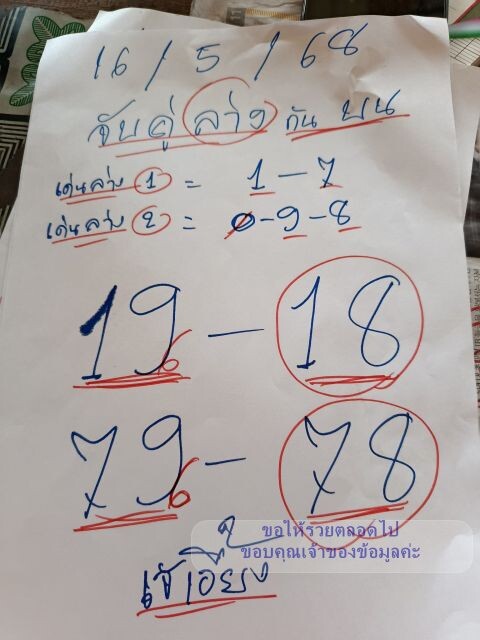 16 / 5 / 68
จับคู่ ล่าง กัน บน
เด่นล่าง 1 = 1 - 7
เด่นล่าง 2 = 0 - 9 - 8
19 - 18
6
79 - 78
6
ขอให้รวยตลอดไป
ขอบคุณเจ้าของข้อมูลค่ะ